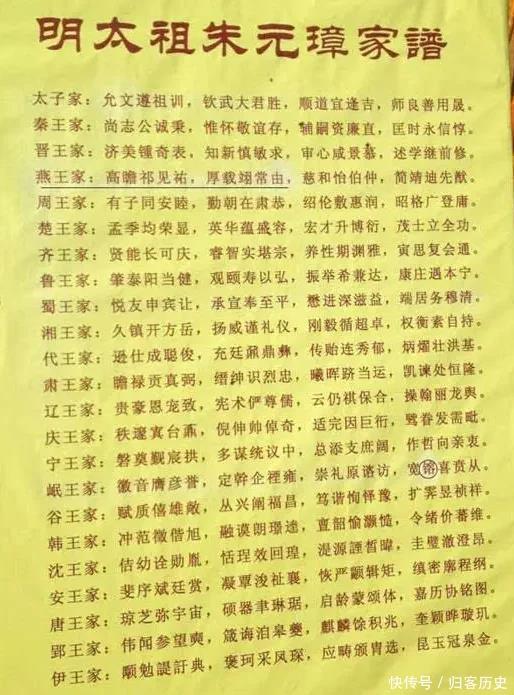 明太祖朱元璋家譜
太子家：允文遵祖训，钦武大君胜，顺道宜逢吉，师良善用晟。
秦王家：尚志公诚秉，惟怀敬谊存，辅嗣资廉直，匡时永信惇。
晋王家：济美锺奇表，知新慎敏求，审心咸景慕，述学继前修。
燕王家：高瞻祁见祐，厚载翊常由，慈和怡伯仲，简靖迪先猷。
周王家：有子同安睦，勤朝在肃恭，绍伦敷惠润，昭格广登庸。
楚王家：孟季均荣显，英华蕴盛容，宏才升博衍，茂士立全功。
齐王家：贤能长可庆，睿智实堪宗，养性期渊雅，寅思复会通。
鲁王家：肇泰阳当健，观颐寿以弘，振举希兼达，康庄遇本宁。
蜀王家：悦友申宾让，承宣奉至平，懋进深滋益，端居务穆清。
湘王家：久镇开方岳，扬威谨礼仪，刚毅循超卓，权衡素自持。
代王家：逊仕成聪俊，充廷鼐鼎彝，传贻连秀郁，炳燿壮洪基。
肃王家：瞻禄贡真弼，缙绅识烈忠，曦晖跻当运，凯谏处恒隆。
辽王家：贵豪恩宠致，宪术俨尊儒，云仍祺保合，操翰丽龙舆。
庆王家：秩邃寘台鼒，倪伸帅倬奇，适完因巨衍，眷发需毗。
宁王家：磐奠觐宸拱，多谋统议中，总添支庶阔，作哲向亲衷。
岷王家：徽音膺彦誉，定幹企禋雍，崇礼原谘访，宽镕喜贲从。
谷王家：赋质僖雄敞，丛兴阐福昌，笃谐恂怿豫，扩霁昱祯祥。
韩王家：冲范徵偕旭，融谟朗璟逵，亶韶愉灏慥，令绪价蕃维。
沈王家：佶幼诠勋胤，恬珵效回瑝，湜源諲晢暐，圭璧澈澄昂。
安王家：斐序斌廷赏，凝覃浚祉襄，恢严颛辑矩，缜密廓程纲。
唐王家：琼芝弥宇宙，硕器聿琳琚，启龄蒙颂体，嘉历协铭图。
郢王家：伟闻参望奭，箴诲洎皋夔，麒麟馀积兆，奎颖晔璇玑。
伊王家：颙勉諟訏典，褒珂采凤琛，应畴颁胄选，昆玉冠泉金。
快传号/归客历史